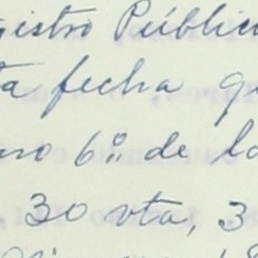 gistro Públic
ta fecha q
mo 6º. de la
30 vta, 3